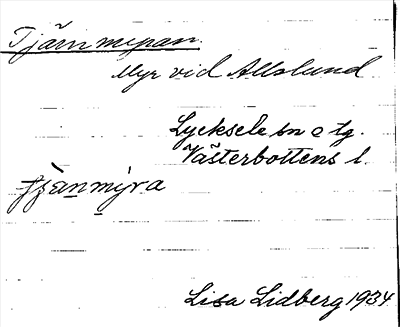 Tjärnmyran.
Myr vid Allslund
Lycksele sn o tg.
Västerbottens l.
Lisa Lidberg 1934